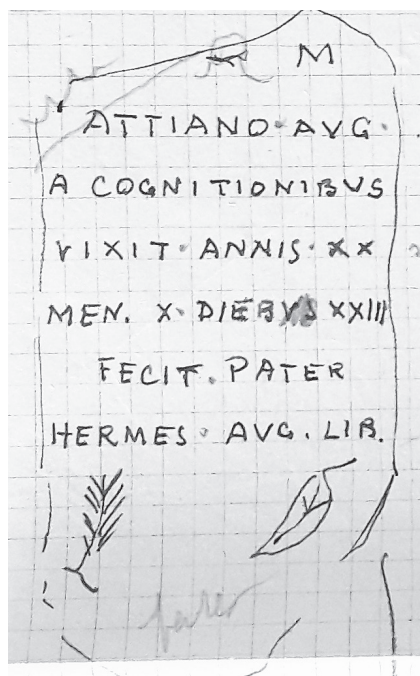 M
ATTIANO · AVG ·
A COGNITIONIBVS
VIXIT · ANNIS · XX
MEN. X · DIEBVS XXIII
FECIT . PATER
HERMES · AVG . LIB.